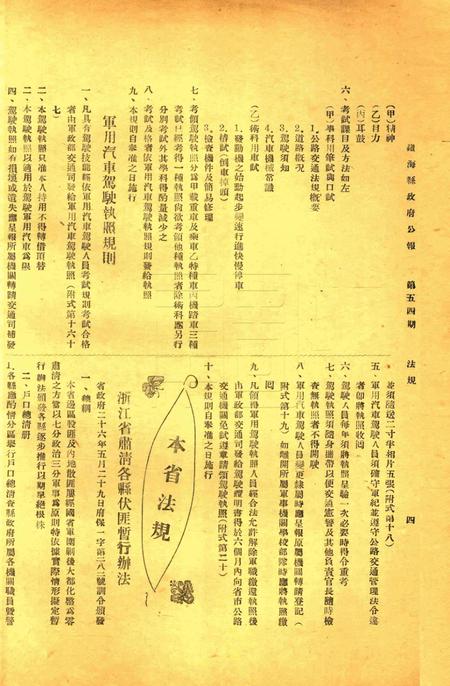 鎮海縣政府公報 第五四期 法規 四
(甲)精神
(乙)目力
(丙)耳鼓
六、考試課目及方法如左
(甲)學科用筆試與口試
1.公路交通法規概要
2.道路概況
3.駕駛須知
4.汽車機械常識
(乙)術科用車試
1.發動機之啓動起步變速行進快慢停車
2.樁試(倒車掉頭)
3.檢查機件及簡易修理
七、考領駕駛執照分爲甲載重車及乘車乙特種車丙機踏車三種
考試已經考得一種執照尙欲考領他種執照者除術科應另行
分別考試外其學科得酌量減少之
八、考試及格者依軍用汽車駕駛執照規則發給執照
九、本規則自奉准之日施行
軍用汽車駕駛執照規則
一、凡具有駕駛技能經依軍用汽車駕駛人員考試規則考試合格
者由軍政部交通司發給軍用汽車駕駛執照(附式第十六十
七)
二、本駕駛執照只准本人持用不得轉借頂替
三、本駕駛執照以適用於駕駛軍用汽車爲限
四、駕駛執照如有損壞或遺失應呈報所屬機關轉請交通司補發
並須隨送二寸半相片五張(附式第十八)
五、軍用汽車駕駛人員須確守軍紀並遵守公路交通管理法令違
者卽將執照收囘
六、駕駛人員每年須將執照呈驗一次必要時得令重考
七、駕駛執照須隨身攜帶以便交通憲警及其他負責官長隨時檢
查無執照者不得開駛
八、軍用汽車駕駛人員變更隸屬時應呈報原屬機關轉請登記(
附式第十九)如離開所屬軍事機關學校部隊時應將執照繳
囘
九、凡領得軍用駕駛執照人員經合法允許解除軍職繳還執照後
由軍政部交通司發給駕駛證明書得於六個月內向省市公路
交通機關免試逕車請領駕駛執照(附式第二十)
十、本規則自奉准之日施行
本省法規
浙江省肅淸各縣伏匪暫行辦法
省政府二十六年五月二十九日府保一字第三八三號訓令頒發
一、總綱
本省邊區股匪及內地散匪屢經國省軍團剿後大都化爲零
肅淸之方當以七分政治三分軍事爲原則特依據實際情形擬定暫
行辦法頒發各縣逐步推行以期早絕根株
二、戶口總淸册
1.各縣應酌情分區舉行戶口總淸查縣政府所屬各機關職員曁警